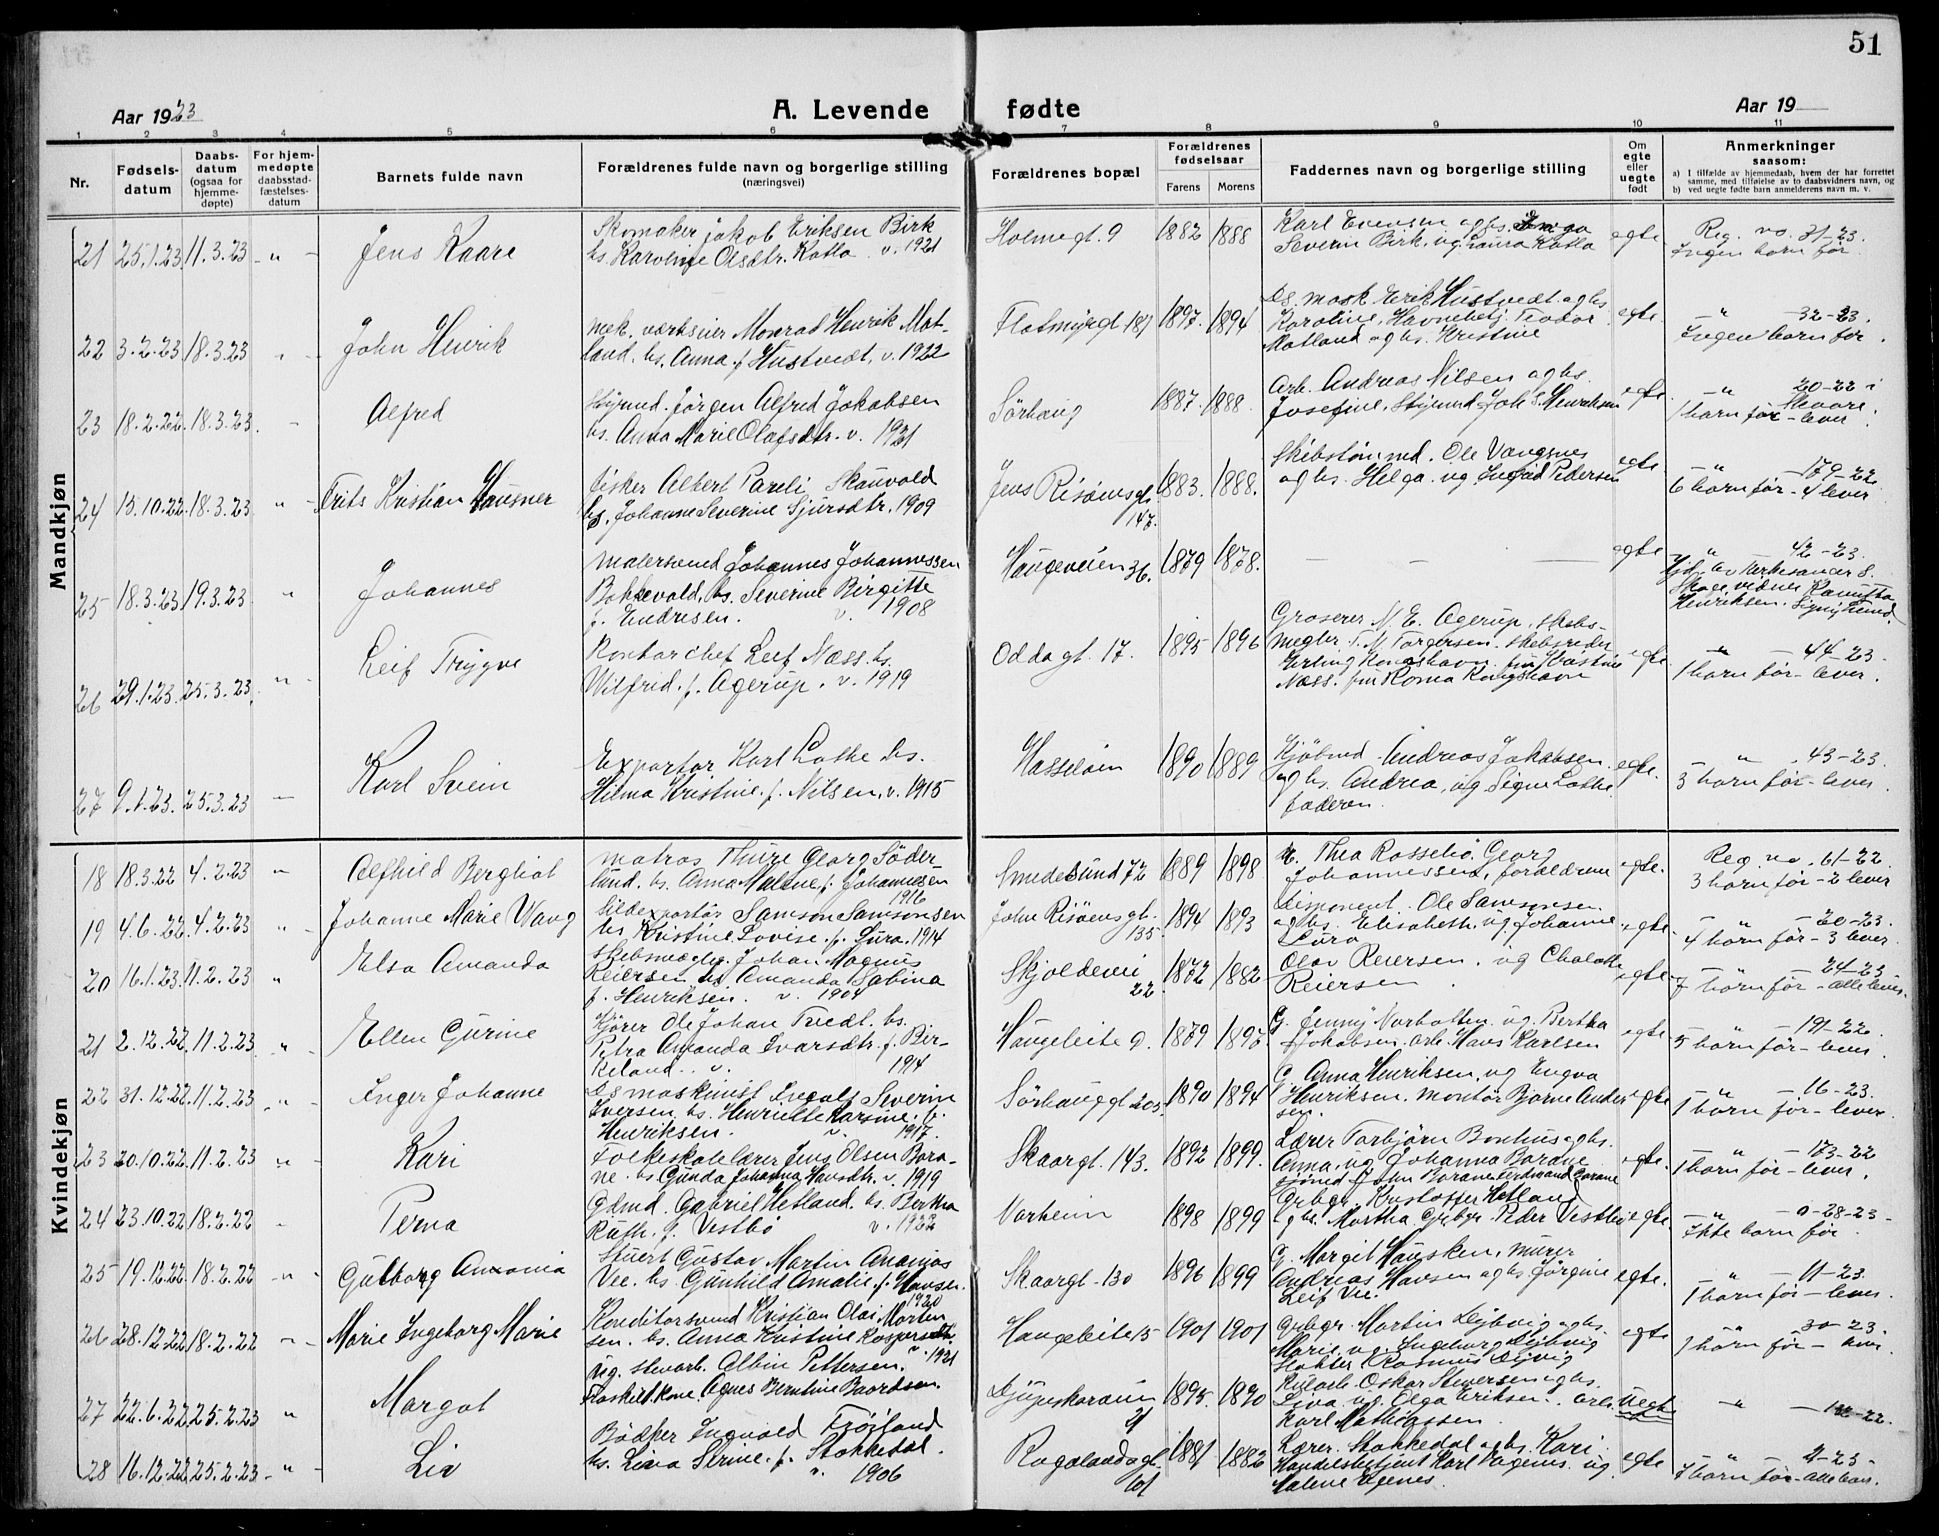 51
Aar 1923
A. Levende fødte
Aar 19
1 2 3 4 5 6 7 8 9 10 11
Nr.
Fødsels-
datum
Daabs-
datum
(ogsaa for
hjemme-
døpte)
For hjem-
medøpte
daabsstad-
fæstelses-
datum
Barnets fulde navn
Forældrenes fulde navn og borgerlige stilling
(næringsvei)
Forældrenes bopæl
Forældrenes
fødselsaar
Farens Morens
Faddernes navn og borgerlige stilling
Om
egte
eller
uegte
født
Anmerkninger
saasom:
a) I tilfælde av hjemmedaab, hvem der har forrettet
samme, med tilføielse av to daabsvidners navn, og
b) ved uegte fødte barn anmelderens navn m. v.
Mandkjøn
21 25.1.23 11.3.23 - " - Jens Kaare
Skomaker Jakob Eriksen Birk
hs. Karoline Olsdtr. Kotla v. 1921
Holmegt. 9 1882 1888
Karl Evensen og hs.
Severin Birk, ug. Laura Kotla
egte
Reg. no. 31-23.
Ingen barn før.
22 3.2.23 18.3.23 " - John Henrik
mek. værkseier Monrad Henrik Mat-
land. hs. Anna f. Hustvedt, v. 1922
Flotmyrgt 181 1897. 1894
Ds. mask. Erik Hustvedt og hs.
Karoline, Havnebetj. Teodor
Matland og hs. Kristine
egte.
- " - 32-23.
Ingen barn før.
23 18.2.22. 18.3.23. - Alfred
Styrmd. Jørgen Alfred Jakobsen
hs. Anna Marie Olafsdtr. v. 1921
Sørhaug 1887. 1888.
Arb. Andreas Nilsen og hs.
Josefine, Styrmd. Joh. S. Henriksen
egte.
- " - 20-22 i
Skaare.
1 barn før - lever.
24 15.10.22. 18.3.23. " - Frits Kristian Hausner
fisker Albert Pareli Skauvold
hs. Johanne Severine Sjursdtr. 1909
Jens Risøens gt.
147. 1883. 1888.
Skibstømmd. Ole Vangsnes
og hs. Helga. ug. Ingrid Pedersen
egte
- " - 179-22
6 barn før - 4 lever
25 18.3.23 19.3.23 " Johannes
Malersvend Johannes Johannessen
Bokkevold, hs. Severine Birgitte
f. Endresen. v. 1908
Haugeveien 36. 1879 1878.
- - -
egte
" 42-23.
Henriksen.
26 29.1.23. 25.3.23. " - Leif Trygve
Kontorchef Leif Næss. hs.
Wilfrid. f. Agerup. v. 1919
Oddagt. 17. 1895 1896
Groserer N. E. Agerup, skibs-
megler T. M. Torgersen, skibsreder
Erling Kongshavn, frk. Kristine
Næss. frk. Roma Kongshavn
egte.
- " - 44-23.
1 barn før - lever.
27 9.1.23. 25.3.23 - Karl Svein
Exportør Karl Lothe hs.
Hilma Kristine f. Nilsen, v. 1915
Hasseløen 1890 1889
Kjøbmd. Andreas Jakobsen.
og hs. Andrea, ug. Signe Lothe
faderen.
egte.
- " - 43-23.
3 barn før - lever.
Kvindekjøn
18 18.3.22 4.2.23 " Alfhild Bergliot
Matros Thure Georg Søder-
lund. hs. Anna Malene f. Johannesen
1916
Smedesund 72 1889 1898
e. Thea Rossebø. Georg
Johannessen, forældrene
egte.
Reg. no. 61-22.
3 barn før - 2 lever
19 4.6.22 4.2.23 " - Johanne Marie Wang
Sildexportør Samson Samsonsen
hs. Kristine Lovise. f. Lura. 1914
John Risøens gt.
135 1894 1893
disponent. Ole Samsonsen.
og hs. Elisabeth. ug. Johanne
Lura
egte.
- " - 20-23.
4 barn før - 3 lever.
20 16.1.23. 11.2.23 " Elsa Amanda
Skibsmægler Johan Magnus
Reiersen hs Amanda Sabina
f. Henriksen. v. 1904
Skjoldevei
22. 1872 1882
Olav Reiersen. ug Chalotte
Reiersen.
egte.
- " - 24-23
7 børn før - alle lever.
21 2.12.22. 11.2.23 " Ellen Gurine
Kjører Ole Johan Tvedt. hs.
Petra Amanda Ivarsdtr. f. Bir-
keland. v. 1914
Haugeleite 9. 1879 189
G. Jenny Norbotten. ug. Bertha
Jakobsen. arb. Hans Karlsen
egte.
- " - 191-22.
5 børn før - lever.
22 31.12.22. 11.2.23 " - Inger Johanne
Ds maskinist Ingvalt Severin
Iversen hs. Henriette Karsine. f.
Henriksen. v. 1917.
Sørhauggt 205. 1890 1894
G. Anna Henriksen, ug Engva
Henriksen. Montør Bjarne Ander
sen.
egte
- " - 16-23.
1 børn før - lever.
23 20.10.22. 11.2.23 " - Kari
Folkeskolelærer Jens Olsen Bora-
ne. hs Gunda Johanna Hansdtr. v. 1919
Skaargt. 143. 1892 1899.
Lærer Torbjørn Bonhus og hs.
Anna, ug Johanna Borane
sjømd John Borane Ferdinand Borane
egte.
- " - 173-22
1 barn før - lever.
24 23.10.22 18.2.22 - Perna
Gdmd. Gabriel Hetland. hs. Bertha
Ruth. f. Vestbø v. 1922
Norheim 1898 1899
Grbgr. Kristoffer Hetland
og hs. Martha Grbgr. Peder Vestbø
egte.
- " - 0-28-23-
Ikke barn før.
25 19.12.22. 18.2.22 - " - Gulborg Antonia
Stuert Gustav Martin Ananias
Vee. hs. Gunhild Amalie f. Hansen.
1920
Skaargt - 130 1896 1899
G. Margit Hausken, murer
Andreas Hansen og hs. Jørgine
Leif Vee.
egte.
- " - 11-23.
1 barn før - lever.
26 28.12.22 18.2.22 " - Marie Ingeborg Marie
Konditorsvend Kristian Olai Morten
sen. hs. Anna Kristine Kaspersdtr.
v. 1921
Haugeleite 15 1901 1901
Grbgr. Martin Dybvig og hs.
Marie. ug. Ingeborg Dybvig
Slakter Rasmus Dybvig
egte
- " - 30-23.
1 børn før - lever.
27 22.6.22. 25.2.23 " Margot
ug. stevarb. Albin Pettersen.
fraskilt kone. Agnes Berntine Baardsen.
Djupaskarveien
21 1895. 1890
Oskar Sivertsen og hs.
Liva ug. Olga Eriksen. arb.
Karl Mathiassen.
uegte
- " -
28 16.12.22. 25.2.23 - " - Liv
Bødker Ingvald Frøiland
hs. Lina Serine. f. Stokkedal.
v. 1906
Rogalandsgt.
101 1881 1882
Lærer. Stokkedal og hs. Kari.
Handelsbetjent Karl Vagenes. ug
Malene Vagenes.
egte
- " - 4-23-
7 barn før - alle lever.